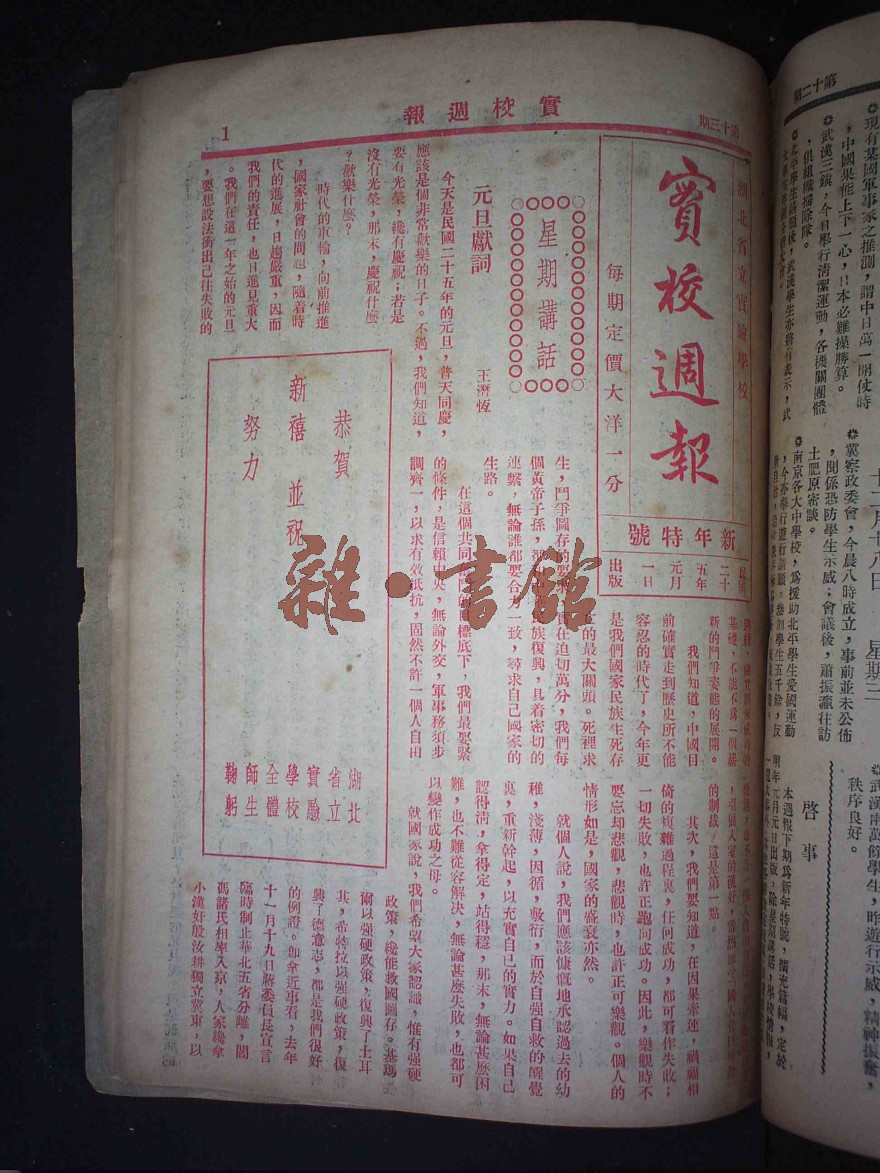 實校週報
第十三期
1
湖北省立實驗學校
實校週報
每期定價大洋一分
新年特號
民國
二十
五年
元月
一日
出版
星期講話
元旦獻詞
王濟恆
今天是民國二十五年的元旦,普天同慶,
應該是個非常歡樂的日子。不過,我們知道,
要有光榮,纔有慶祝;若是
沒有光榮,那末,慶祝什麼
?歡樂什麼?
時代的車輪,向前推進
,國家社會的問題,隨着時
代的進展,日趨嚴重,因而
我們的責任,也日進見重大
。我們在這一年之始的元旦
,要想設法衝出已往失敗的
恭賀
新禧 並祝
努力
湖北
省立
實驗
學校
全體
師生
鞠躬
生,鬥爭圖存的要求
在迫切萬分,我們每
個黃帝子孫,都和
民族復興,具着密切的
連繫,無論誰都要合力一致,尋求自己國家的
生路。
在這個共同
目標底下,我們最要緊
的條件,是信賴中央,無論外交,軍事務須步
調齊一,以求有效抵抗,固然不許一個人自由
基礎,不能不為一個嶄
新的鬥爭姿態的展開。
我們知道,中國目
前確實走到歷史所不能
容忍的時代了,今年更
是我們國家民族生死存
亡的最大關頭。死裡求
的制裁,這是第一點。
其次,我們要知道,在因果牽連,禍福相
倚的複雜過程裏,任何成功,都可看作失敗;
一切失敗,也許正跑向成功。因此,樂觀時不
要忘却悲觀,悲觀時,也許正可樂觀。個人的
情形如是,國家的盛衰亦然。
就個人說,我們應該慷慨地承認過去的幼
稚,淺薄,因循,敷衍,而於自強自救的醒覺
裏,重新幹起,以充實自己的實力。如果自己
認得清,拿得定,站得穩,那末,無論甚麼困
難,也不難從容解決,無論甚麼失敗,也都可
以變作成功之母。
就國家說,我們希望大家認識,惟有強硬
政策,纔能救國圖存。基瑪
爾以強硬政策,復興了土耳
其,希特拉以強硬政策,復
興了德意志,都是我們很好
的例證。即拿近事看,去年
十一月十九日蔣委員長宣言
臨時制止華北五省分離,閻
馮諸氏相率入京,人家纔拿
小漢奸殷汝耕獨立冀東,以
第十二期
現有某國軍事家之推測,謂中日萬一開仗時
,中國果能上下一心,日本必難操勝算。
武漢三鎮,今日舉行清潔運動,各機關團體
,俱組織掃除隊。
北平學生請願後,武漢學生亦將有表示,武
十二月十八日 星期三
冀察政委會,今晨八時成立,事前並未公佈
,聞係恐防學生示威;會議後,蕭振瀛往訪
土肥原密談。
南京各大中學校,為援助北平學生愛國運動
,今亦舉行遊行請願,參加學生五千餘,反
武漢兩萬餘學生,昨遊行示威,精神振奮,
秩序良好。
啓事
本週報下期為新年特號,擴充篇幅,定於
明年元月元日出版,除星期講話,
雜·書館